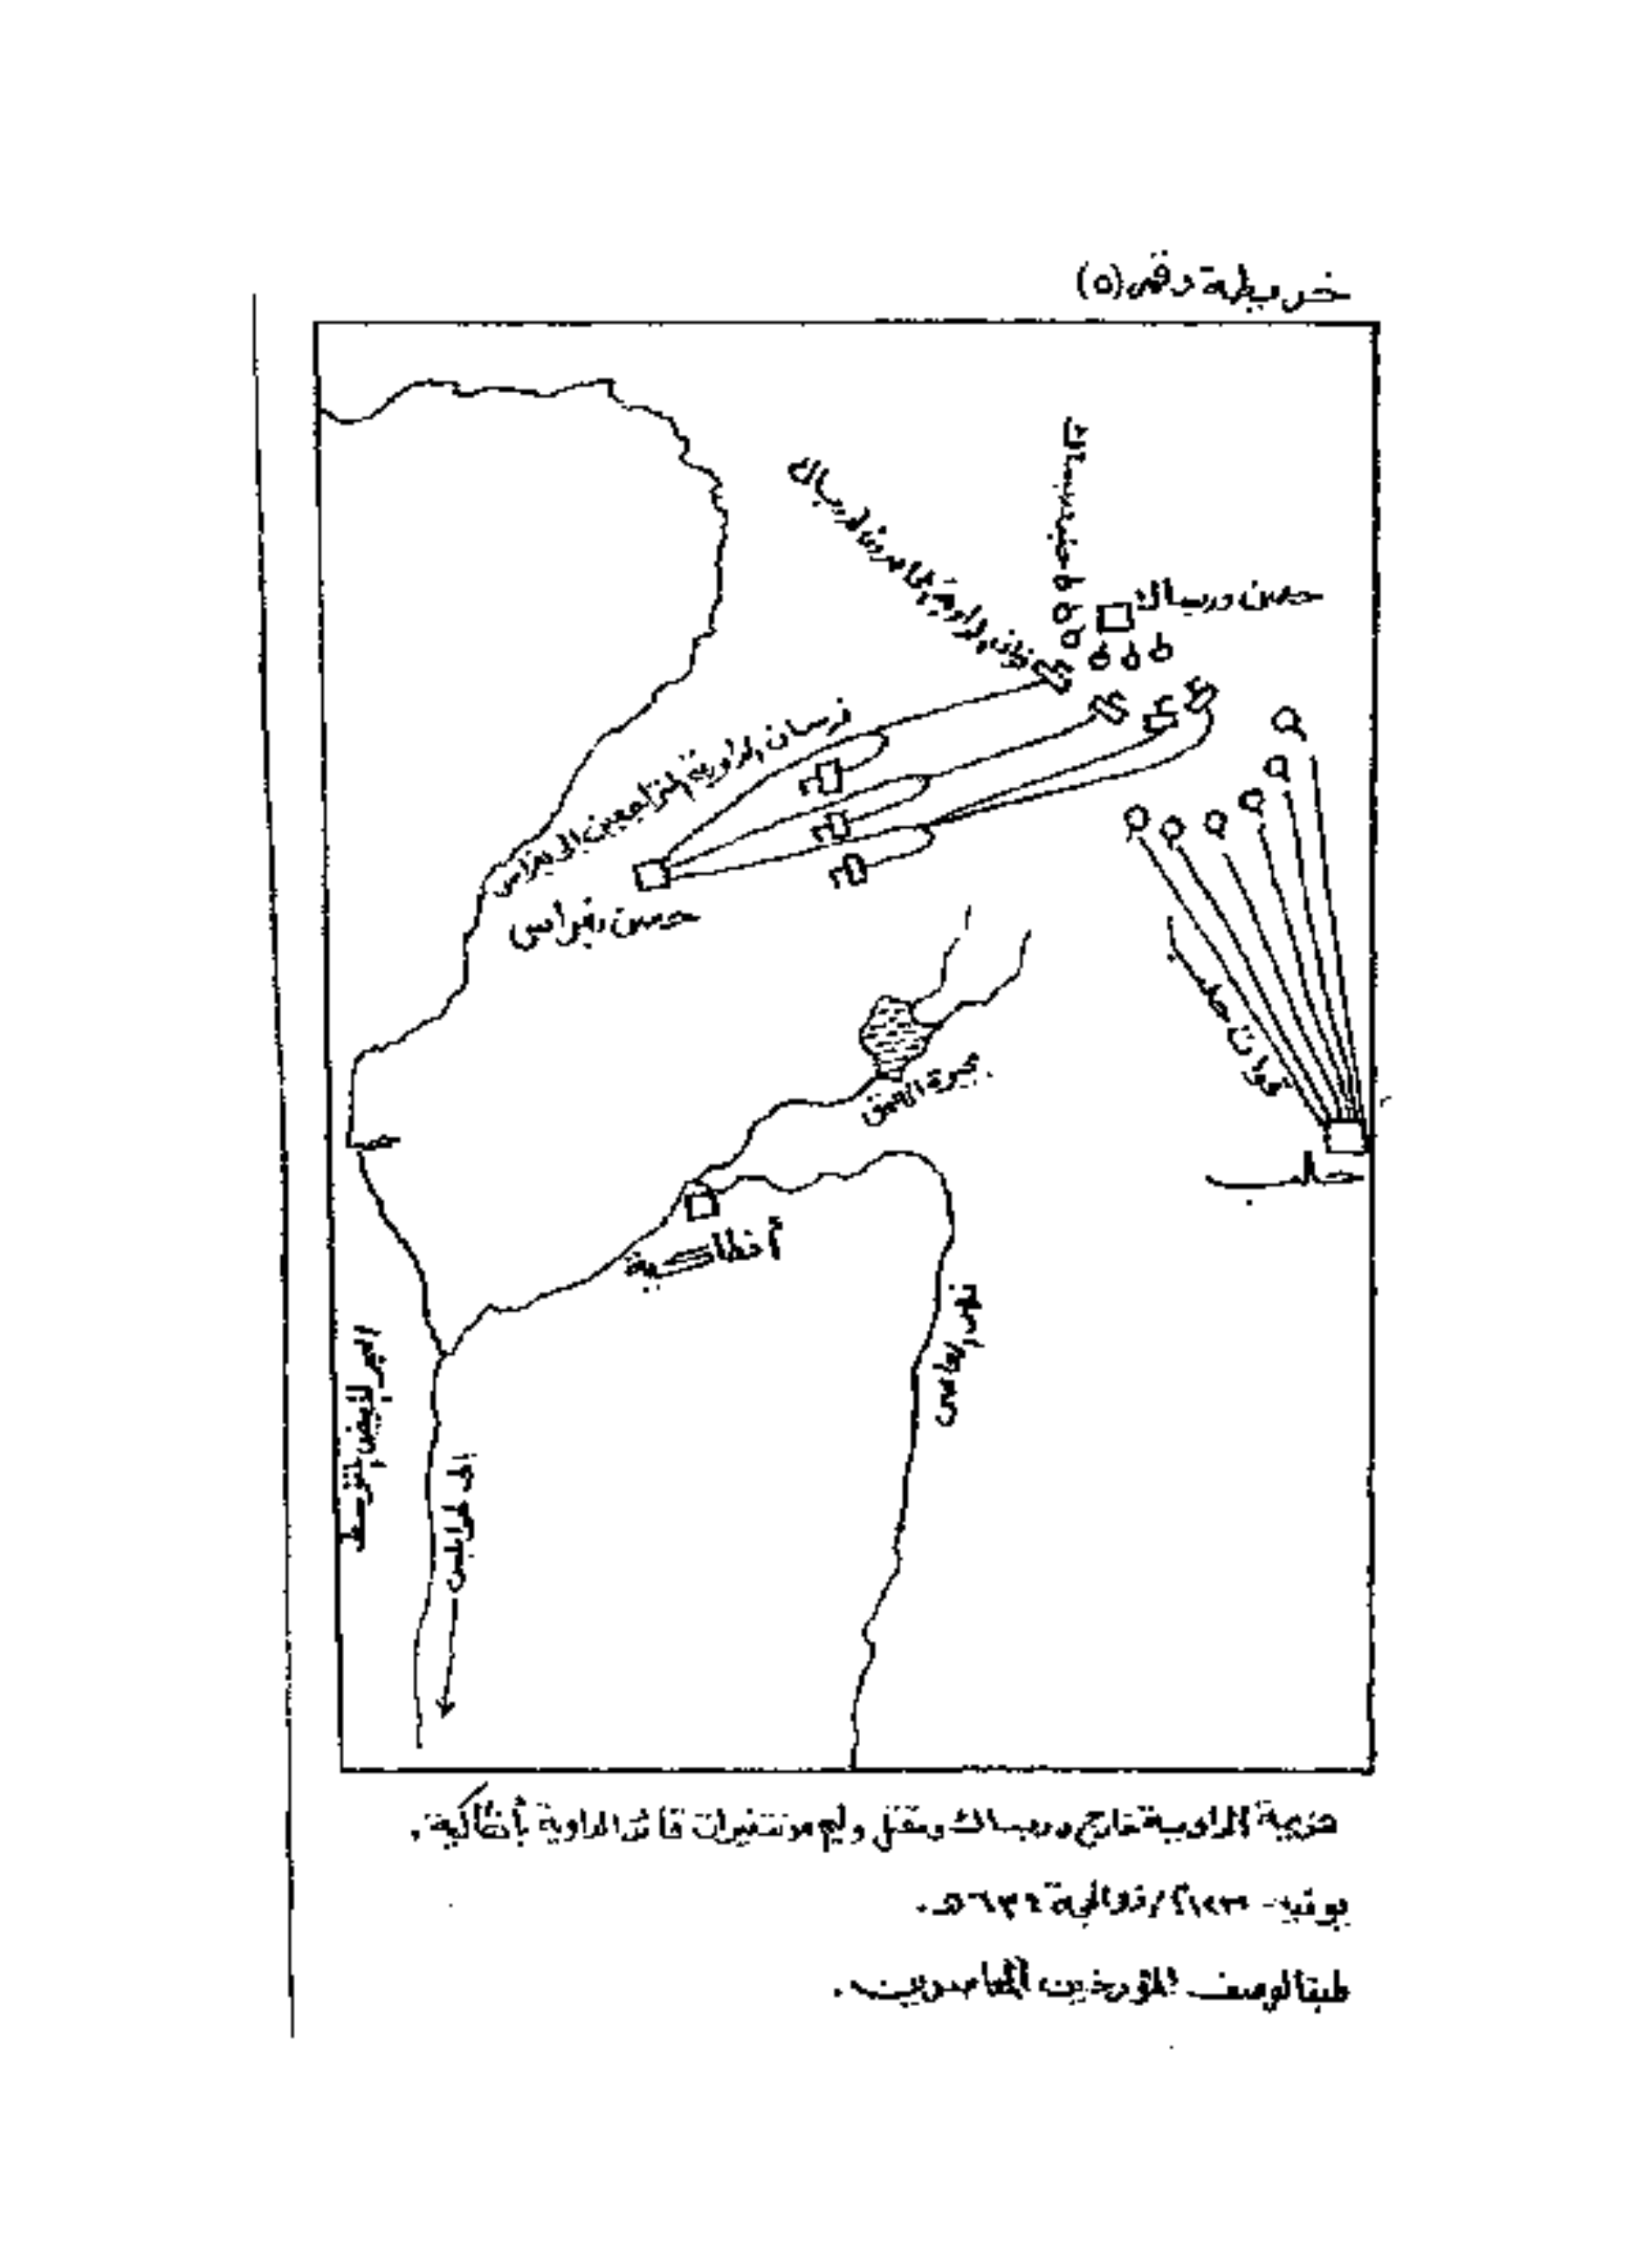 خريطة رقم (٥)
حامية دربساك
حصن دربساك
فرسان الداوية يحاصرون دربساك
فرسان الداوية المتراجعين إلى بغراس
حصن بغراس
قوات حلب
بحيرة العمق
حلب
أنطاكية
نهر العاصى
البحر المتوسط
إلى طرابلس
هزيمة الداوية خارج دربساك ومقتل وليم مونتفرات قائد الداوية بأنطاكية.
يونيه - ١٢٣٧م / ذو الحجة ٦٣٤هـ.
طبقا لوصف المؤرخين المعاصرين.